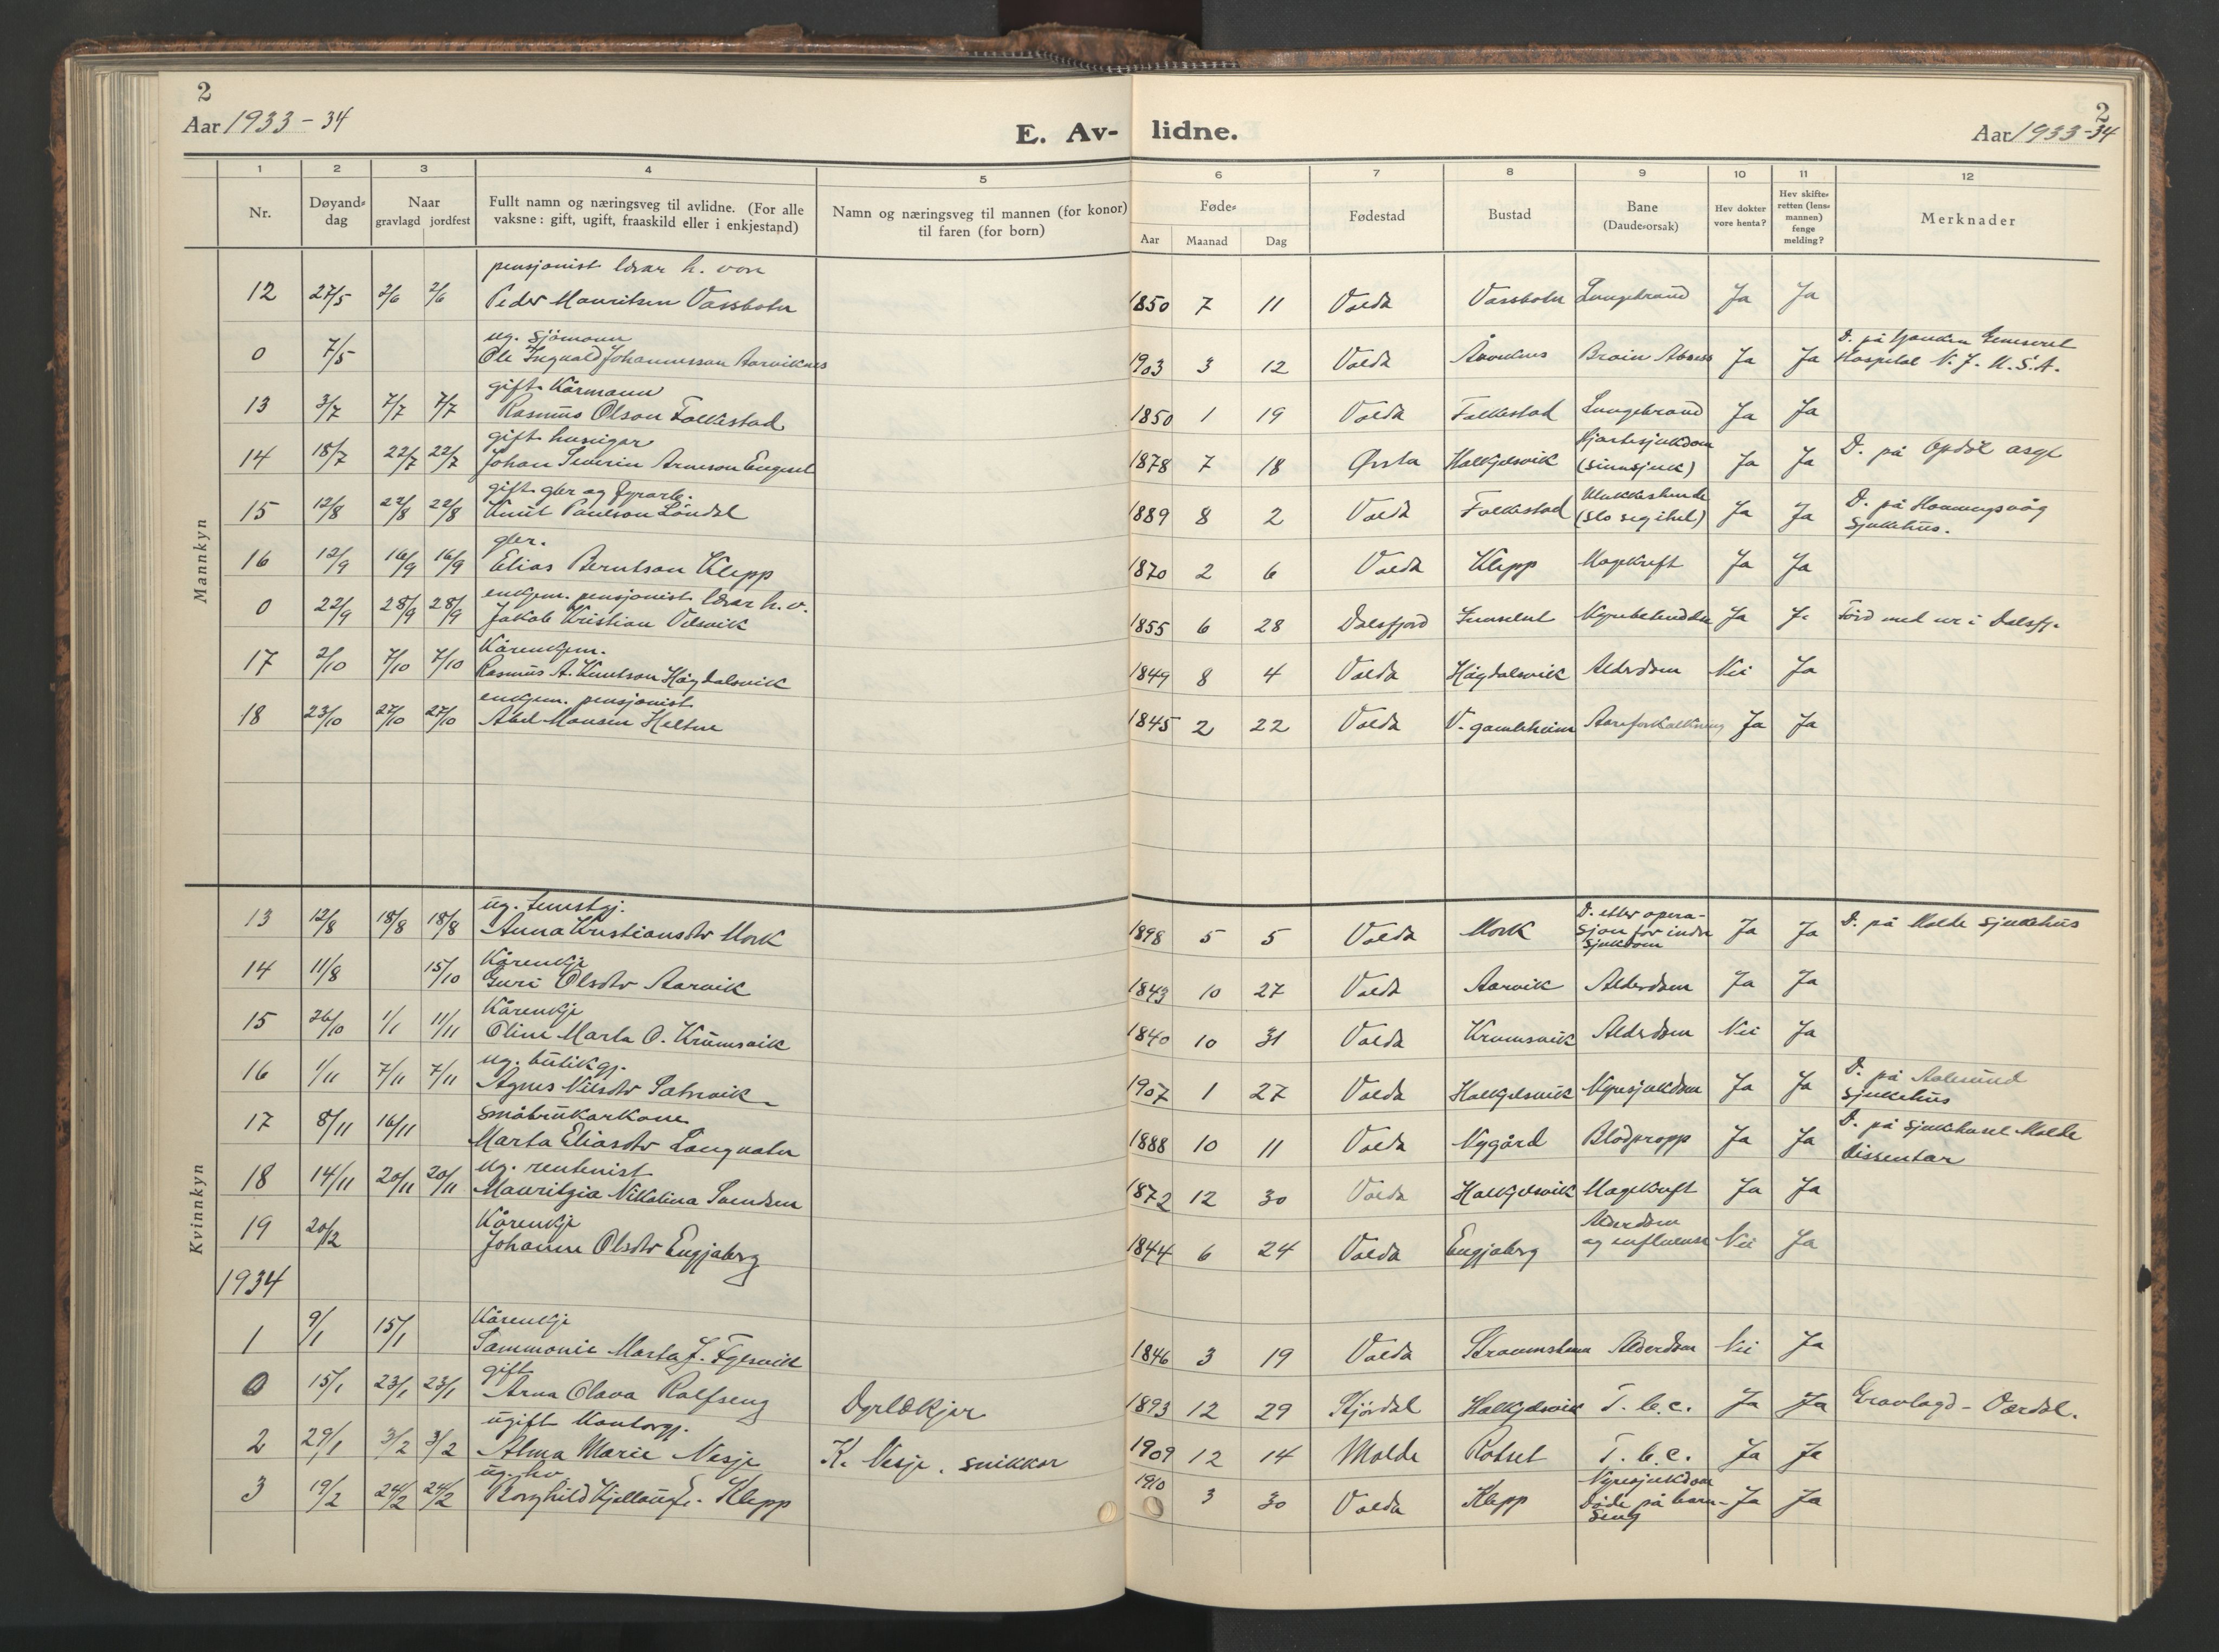 2
Aar 1933-34
E. Av-lidne.
2
Aar 1933-34
1 2 3 4 5 6 7 8 9 10 11 12
Nr.
Døyand-dag
Naar gravlagd jordfest
Fullt namn og næringsveg til avlidne. (For alle vaksne: gift, ugift, fraaskild eller i enkjestand)
Namn og næringsveg til mannen (for konor) til faren (for born)
Føde-
Aar Maanad Dag
Fødestad
Bustad
Bane (Daude-orsak)
Hev dokter vore henta?
Hev skifte-retten (lens-mannen) fenge melding?
Merknader
Mannkyn
pensjonist lærar h. von
12 27/5 2/6 2/6 Peder Mauritsen Vassbotn 1850 7 11 Volda Vassbotn Lungebrand Ja Ja
ug. sjömann
0 7/5 Ole Ingvald Johannesson Aarviknes 1903 3 12 Volda Brain Absess Ja Ja D. på General Hospital N. J. U.S.A.
gift Kårmann
13 3/7 7/7 7/7 Rasmus Olson Folkestad 1850 1 19 Volda Folkestad Lungebrand Ja Ja
gift huseigar
14 18/7 22/7 22/7 Johan Severin Arneson Engeset 1878 7 18 Ørsta Halkjelsvik Hjartesjukdom (sinnsjuk) Ja Ja D. på Opdöl asyl
gift gbr og fyrarb.
15 12/8 22/8 22/8 Knut Paulson Löndal 1889 8 2 Volda Folkestad Ulukkeshende (slo seg ihel) Ja Ja D. på Honningsvåg Sjukehus.
gbr.
16 12/9 16/9 16/9 Elias Berntson Klepp 1870 2 6 Volda Klepp Magekreft Ja Ja
enkjem. pensjonist lærar h. v.
0 22/9 28/9 28/9 Jakob Kristian Velsvik 1855 6 28 Dalsfjord Ja Ja Förd med nr i Dalsfj.
Kårenkjem.
17 2/10 7/10 7/10 Rasmus A. Knutson Högdalsvik 1849 8 4 Volda Högdalsvik Alderdom Nei Ja
enkjem. pensjonist
18 23/10 27/10 27/10 Abel Monsen Heltne 1845 2 22 Volda V. gamleheim Aareforkalkning Ja Ja
Kvinnkyn
ug. tenestgj.
13 12/8 18/8 18/8 Anna Kristiansdtr Mork 1898 5 5 Volda Mork D. etter opera-sjon for indre sjukdom Ja Ja D. på Molde sjukehus
Kårenkje
14 11/8 15/10 Guri Olsdtr Aarvik 1843 10 27 Volda Aarvik Alderdom Ja Ja
Kårenkje
15 26/10 1/1 11/11 Oline Marta O. Krumsvik 1840 10 31 Volda Krumsvik Alderdom Nei Ja
ug. butikgj.
16 1/11 7/11 7/11 Agnes Nilsdtr Sætrevik 1907 1 27 Volda Halkjelsvik Nyresjukdom Ja Ja D. på Aalesund Sjukehus
Småbrukarkone
17 8/11 16/11 Marta Eliasdtr Langvatn 1888 10 11 Volda Nygård Blodpropp Ja Ja D. på sjukehuset Molde dissentar
ug. rentenist
18 14/11 20/11 20/11 Mauritzia Nikolina Svendsen 1872 12 30 Volda Halkjelsvik Magekreft Ja Ja
Kårenkje
19 20/12 Johanne Olsdtr Engjaberg 1844 6 24 Volda Engjaberg Alderdom og influensa Nei Ja
1934
Kårenkje
1 9/1 15/1 Sammonie Marta J. Fylsvik 1846 3 19 Volda Alderdom Nei Ja
gift
0 15/1 23/1 23/1 Arna Olava Rolfseng Dyrlækjar 1893 12 29 Stjördal Halkjelsvik T. b. c. Ja Ja Gravlagd - Værdal.
ugift Kontorgj.
2 29/1 3/2 3/2 Alma Marie Nesje K. Nesje, snikkar 1909 12 14 Molde Rotset T. b. c. Ja Ja
ug. hv
3 19/2 24/2 24/2 Borghild Kjellaug E. Klepp 1910 3 30 Volda Klepp Nyresjukdom döde på barn-seng Ja Ja